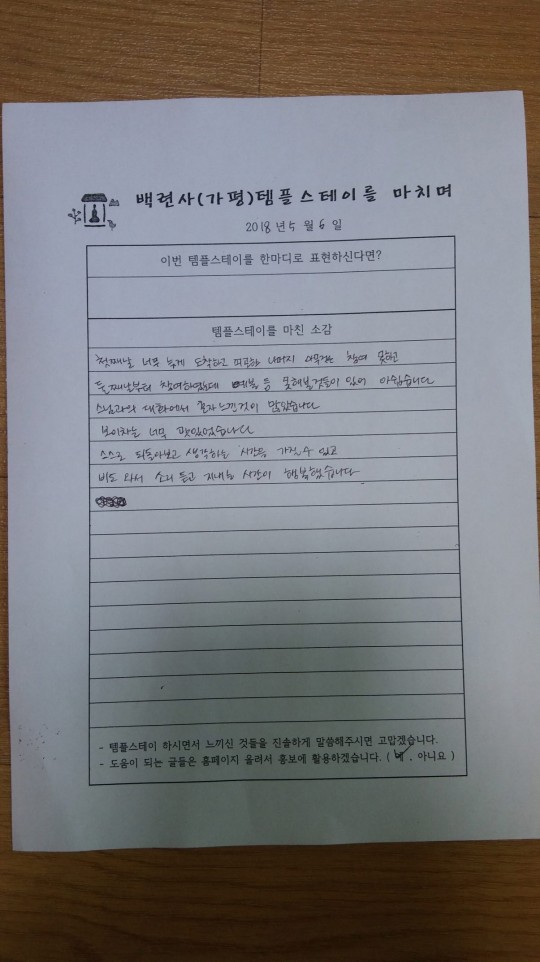 백련사(가평)템플스테이를 마치며
2018년 5월 6일
이번 템플스테이를 한마디로 표현하신다면?
템플스테이를 마친 소감
첫째날 너무 늦게 도착하고 피곤하 나머지 아무것도 참여 못하고
둘째날부터 참여하였는데 예불 등 못해본것들이 있어 아쉽습니다
스님과의 대화에서 느낀것이 많았습니다
보이차는 너무 맛있었습니다
스스로 되돌아보고 생각하는 시간을 가질수 있고
비도 와서 소리 듣고 지내는 시간이 행복했습니다
- 템플스테이 하시면서 느끼신 것들을 진솔하게 말씀해주시면 고맙겠습니다.
- 도움이 되는 글들은 홈페이지 올려서 홍보에 활용하겠습니다. ( 네 . 아니요 )